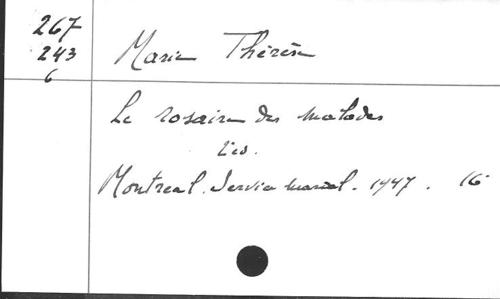 267
243
6
Marie Thérèse
Le rosaire des malades
2 éd.
Montreal. Service marial. 1947. 16